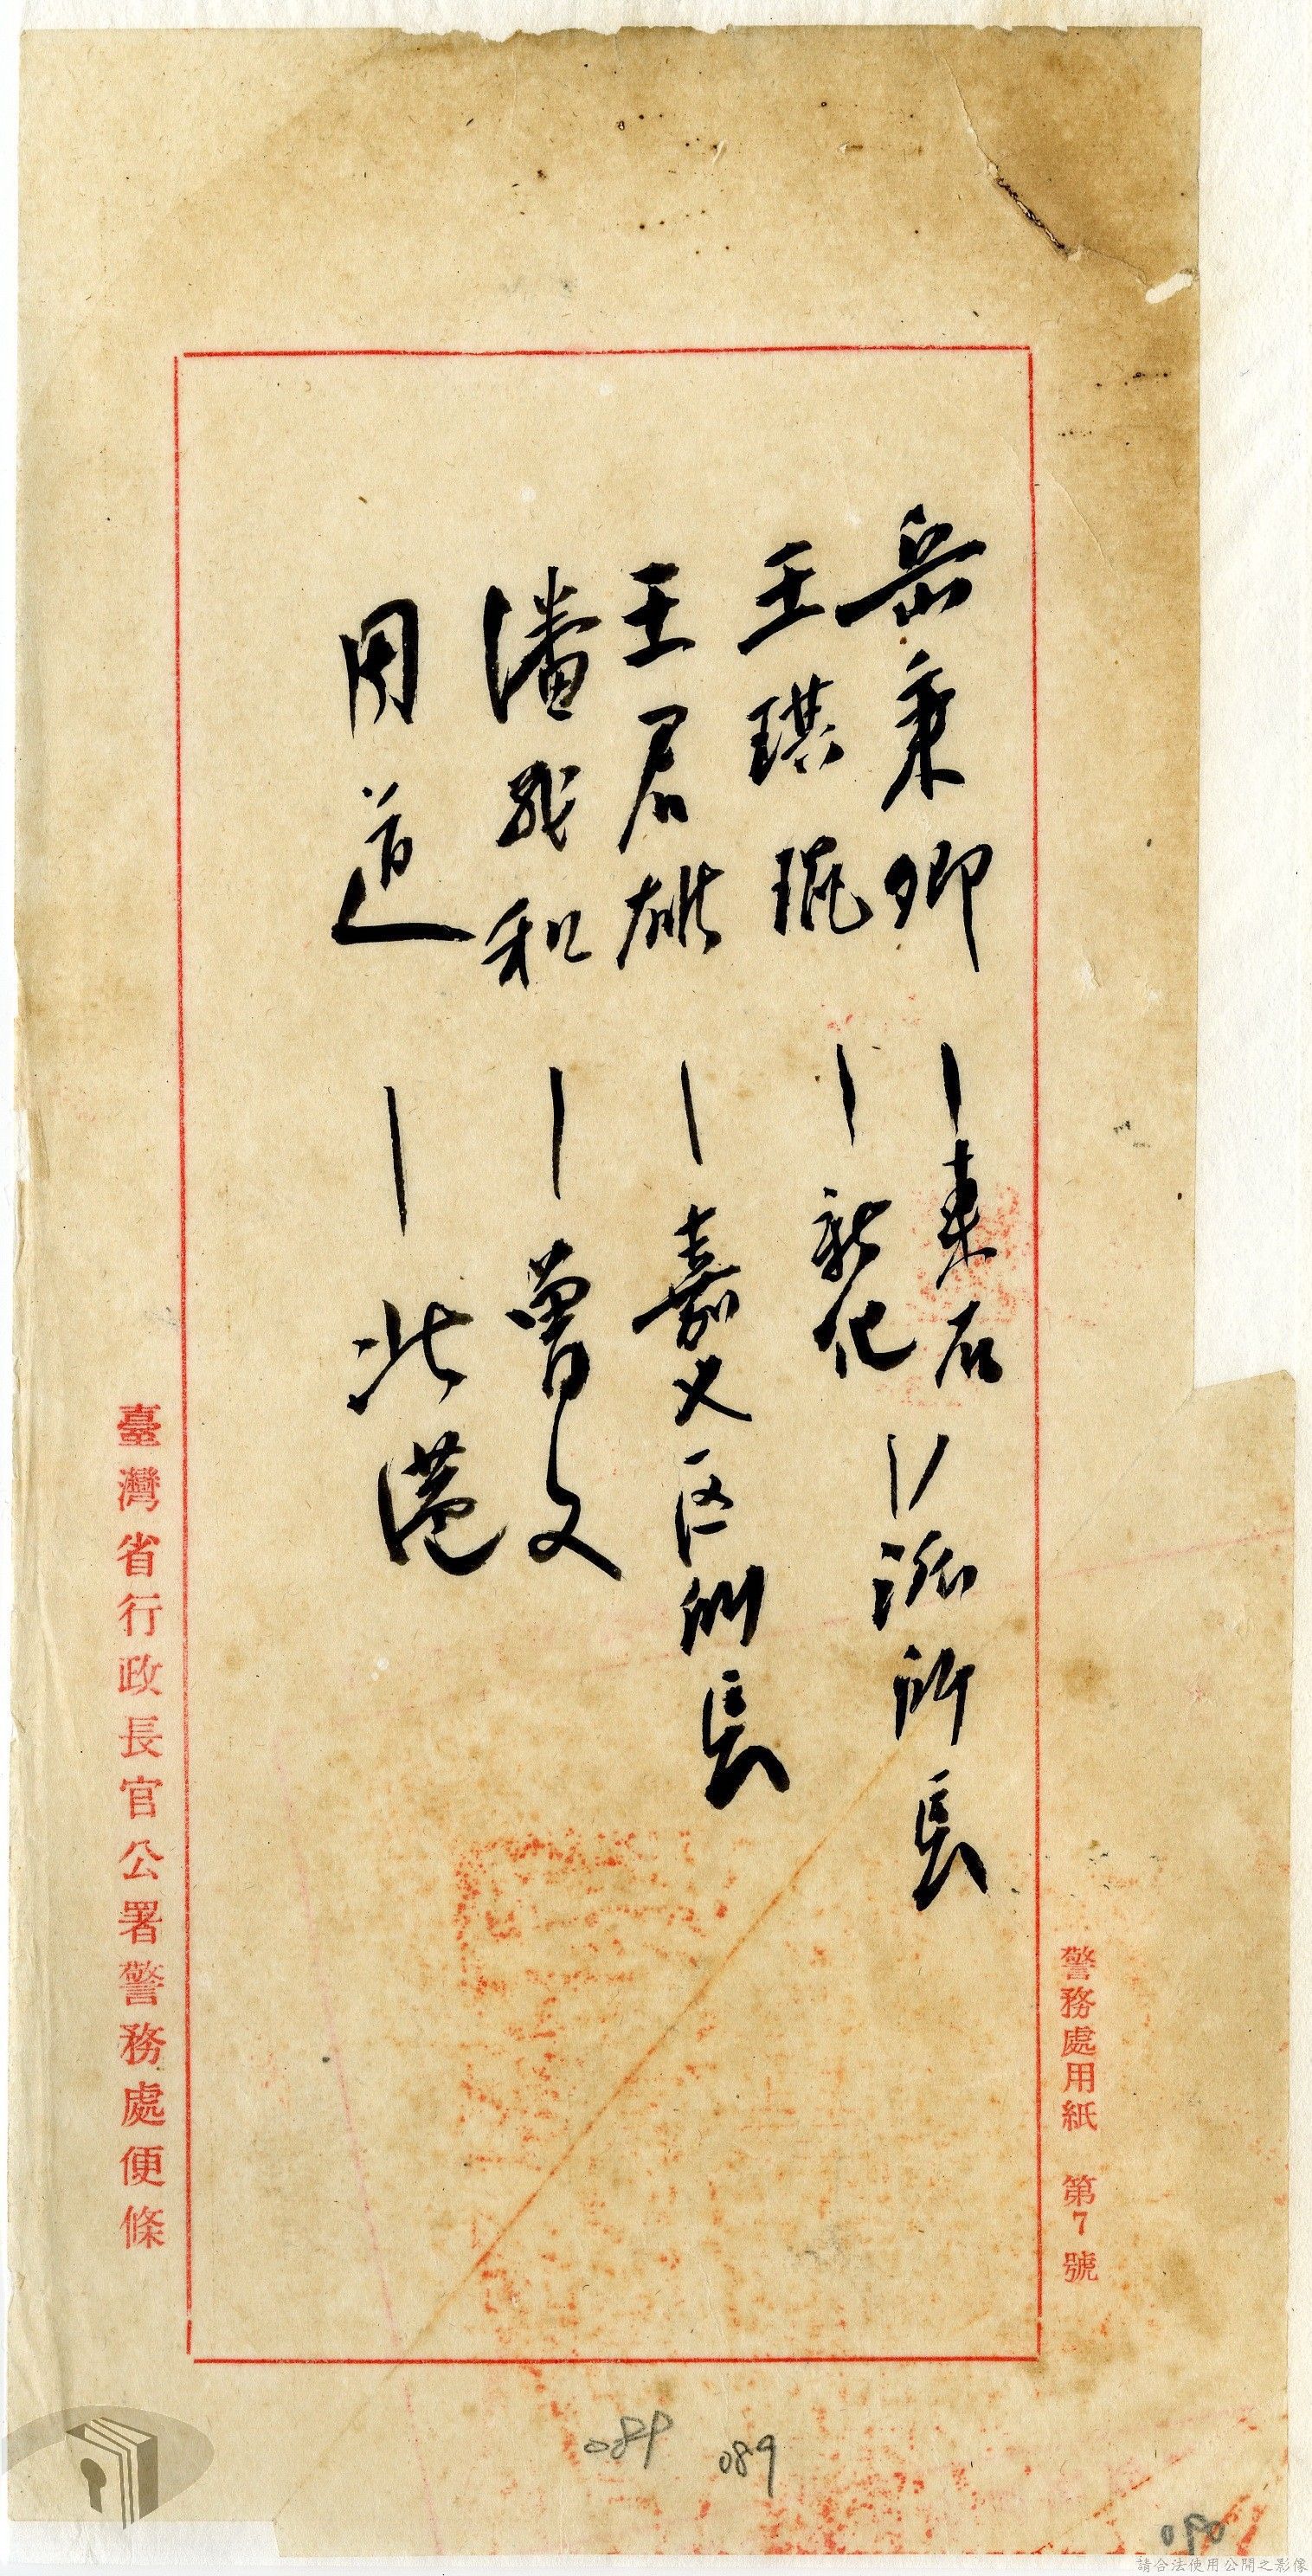 警務處用紙　第7號
岳秉卿―東石
王琪琨―新化
派所長
王君雄―嘉义区副長
潘我和―曾文
周道―北港
臺灣省行政長官公署警務處便條
089
089
090
請合法使用公開之影像